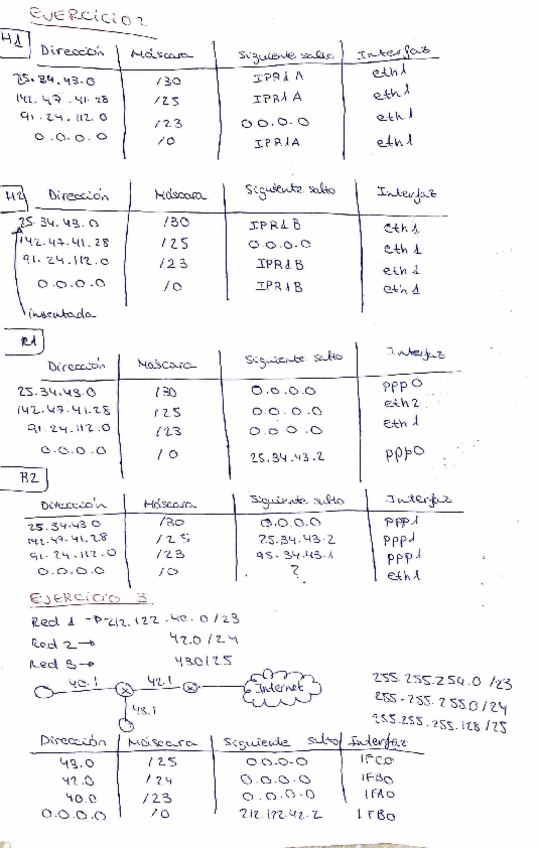 EJERCICIO 2
H1
Dirección Máscara Siguiente salto Interfaz
25.34.43.0 /30 IPR1A eth1
142.47.41.28 /25 IPR1A eth1
91.24.112.0 /23 0.0.0.0 eth1
0.0.0.0 /0 IPR1A eth1
H2 Dirección Máscara Siguiente salto Interfaz
25.34.43.0 /30 IPR1B eth1
142.47.41.28 /25 0.0.0.0 eth1
91.24.112.0 /23 IPR1B eth1
0.0.0.0 /0 IPR1B eth1
inventada
R1
Dirección Máscara Siguiente salto Interfaz
25.34.43.0 /30 0.0.0.0 ppp0
142.47.41.28 /25 0.0.0.0 eth2
91.24.112.0 /23 0.0.0.0 eth1
0.0.0.0 /0 25.34.43.2 ppp0
R2
Dirección Máscara Siguiente salto Interfaz
25.34.43.0 /30 0.0.0.0 ppp1
142.47.41.28 /25 25.34.43.2 ppp1
91.24.112.0 /23 95.34.43.1 ppp1
0.0.0.0 /0 ? eth1
EJERCICIO 3
Red 1 → 212.122.40.0/23
Red 2 → 42.0/24
Red 3 → 430/25
40.1 42.1 Internet
43.1
255.255.254.0 /23
255.255.2550/24
255.255.255.128/25
Dirección Máscara Siguiente salto Interfaz
43.0 /25 0.0.0.0 IFC0
42.0 /24 0.0.0.0 IFB0
40.0 /23 0.0.0.0 IFA0
0.0.0.0 /0 212.122.42.2 IFB0